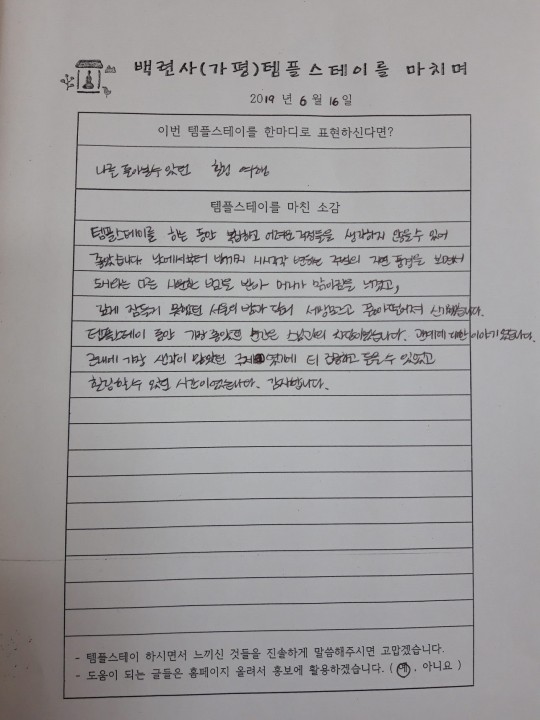 백련사(가평)템플스테이를 마치며
2019 년 6 월 16 일
이번 템플스테이를 한마디로 표현하신다면?
나를 돌아볼수 있던 힐링 여행
템플스테이를 마친 소감
템플스테이를 하는 동안 복잡하고 어려운 걱정들을 생각하지 않을수 있어
좋았습니다. 낮에서부터 밤까지 시시각각 변하는 주변의 자연 풍경을 보면서
도시와는 다른 시원한 바람을 받아 머리가 맑아짐을 느꼈고,
쉽게 잠들지 못했던 서울의 밤과 달리 세상모르고 곯아떨어져 신기했습니다.
템플스테이 동안 가장 좋았던 순간은 스님과의 차담이었습니다. 관계에 대한 이야기 였습니다.
근래에 가장 생각이 많았던 주제 였기에 더 집중하고 들을수 있었고
힐링할수 있었던 시간이었습니다. 감사합니다.
- 템플스테이 하시면서 느끼신 것들을 진솔하게 말씀해주시면 고맙겠습니다.
- 도움이 되는 글들은 홈페이지 올려서 홍보에 활용하겠습니다. ( 예 , 아니요 )